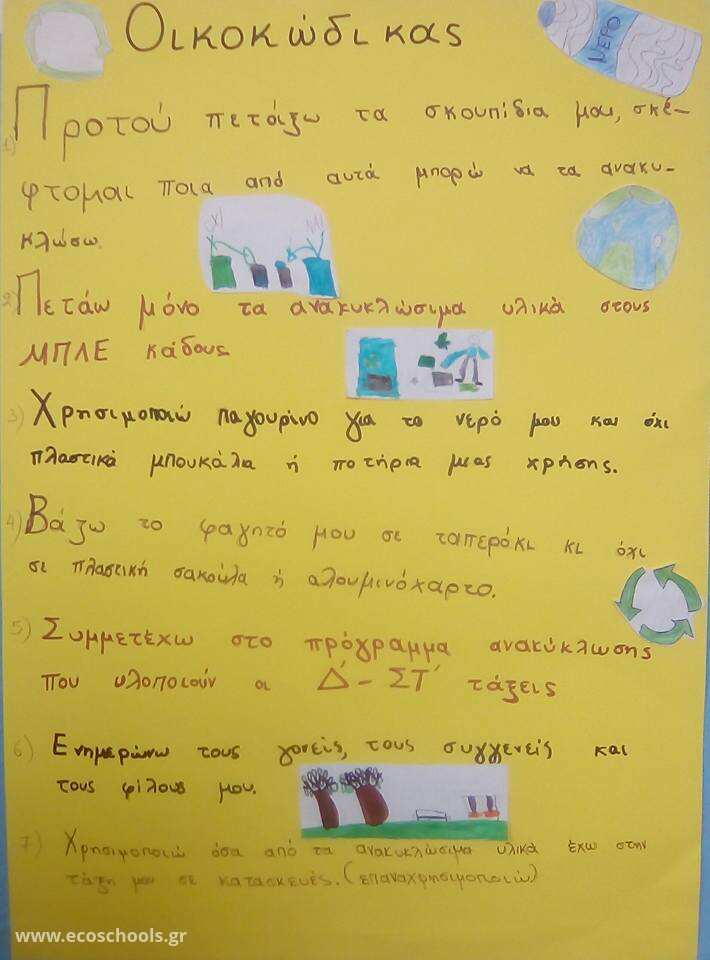 Οικοκώδικας
ΝΕΡΟ
1) Προτού πετάξω τα σκουπίδια μου, σκέ-
φτομαι ποια από αυτά μπορώ να τα ανακυ-
κλώσω.
2) Πετάω μόνο τα ανακυκλώσιμα υλικά στους
ΜΠΛΕ κάδους
3) Χρησιμοποιώ παγουρίνο για το νερό μου και όχι
πλαστικά μπουκάλα ή ποτήρια μιας χρήσης.
4) Βάζω το φαγητό μου σε ταπεράκι κι όχι
σε πλαστική σακούλα ή αλουμινόχαρτο.
5) Συμμετέχω στο πρόγραμμα ανακύκλωσης
που υλοποιούν οι Δ΄- ΣΤ΄ τάξεις
6) Ενημερώνω τους γονείς, τους συγγενείς και
τους φίλους μου.
7) Χρησιμοποιώ όσα από τα ανακυκλώσιμα υλικά έχω στην
τάξη μου σε κατασκευές. (επαναχρησιμοποιώ)
www.ecoschools.gr